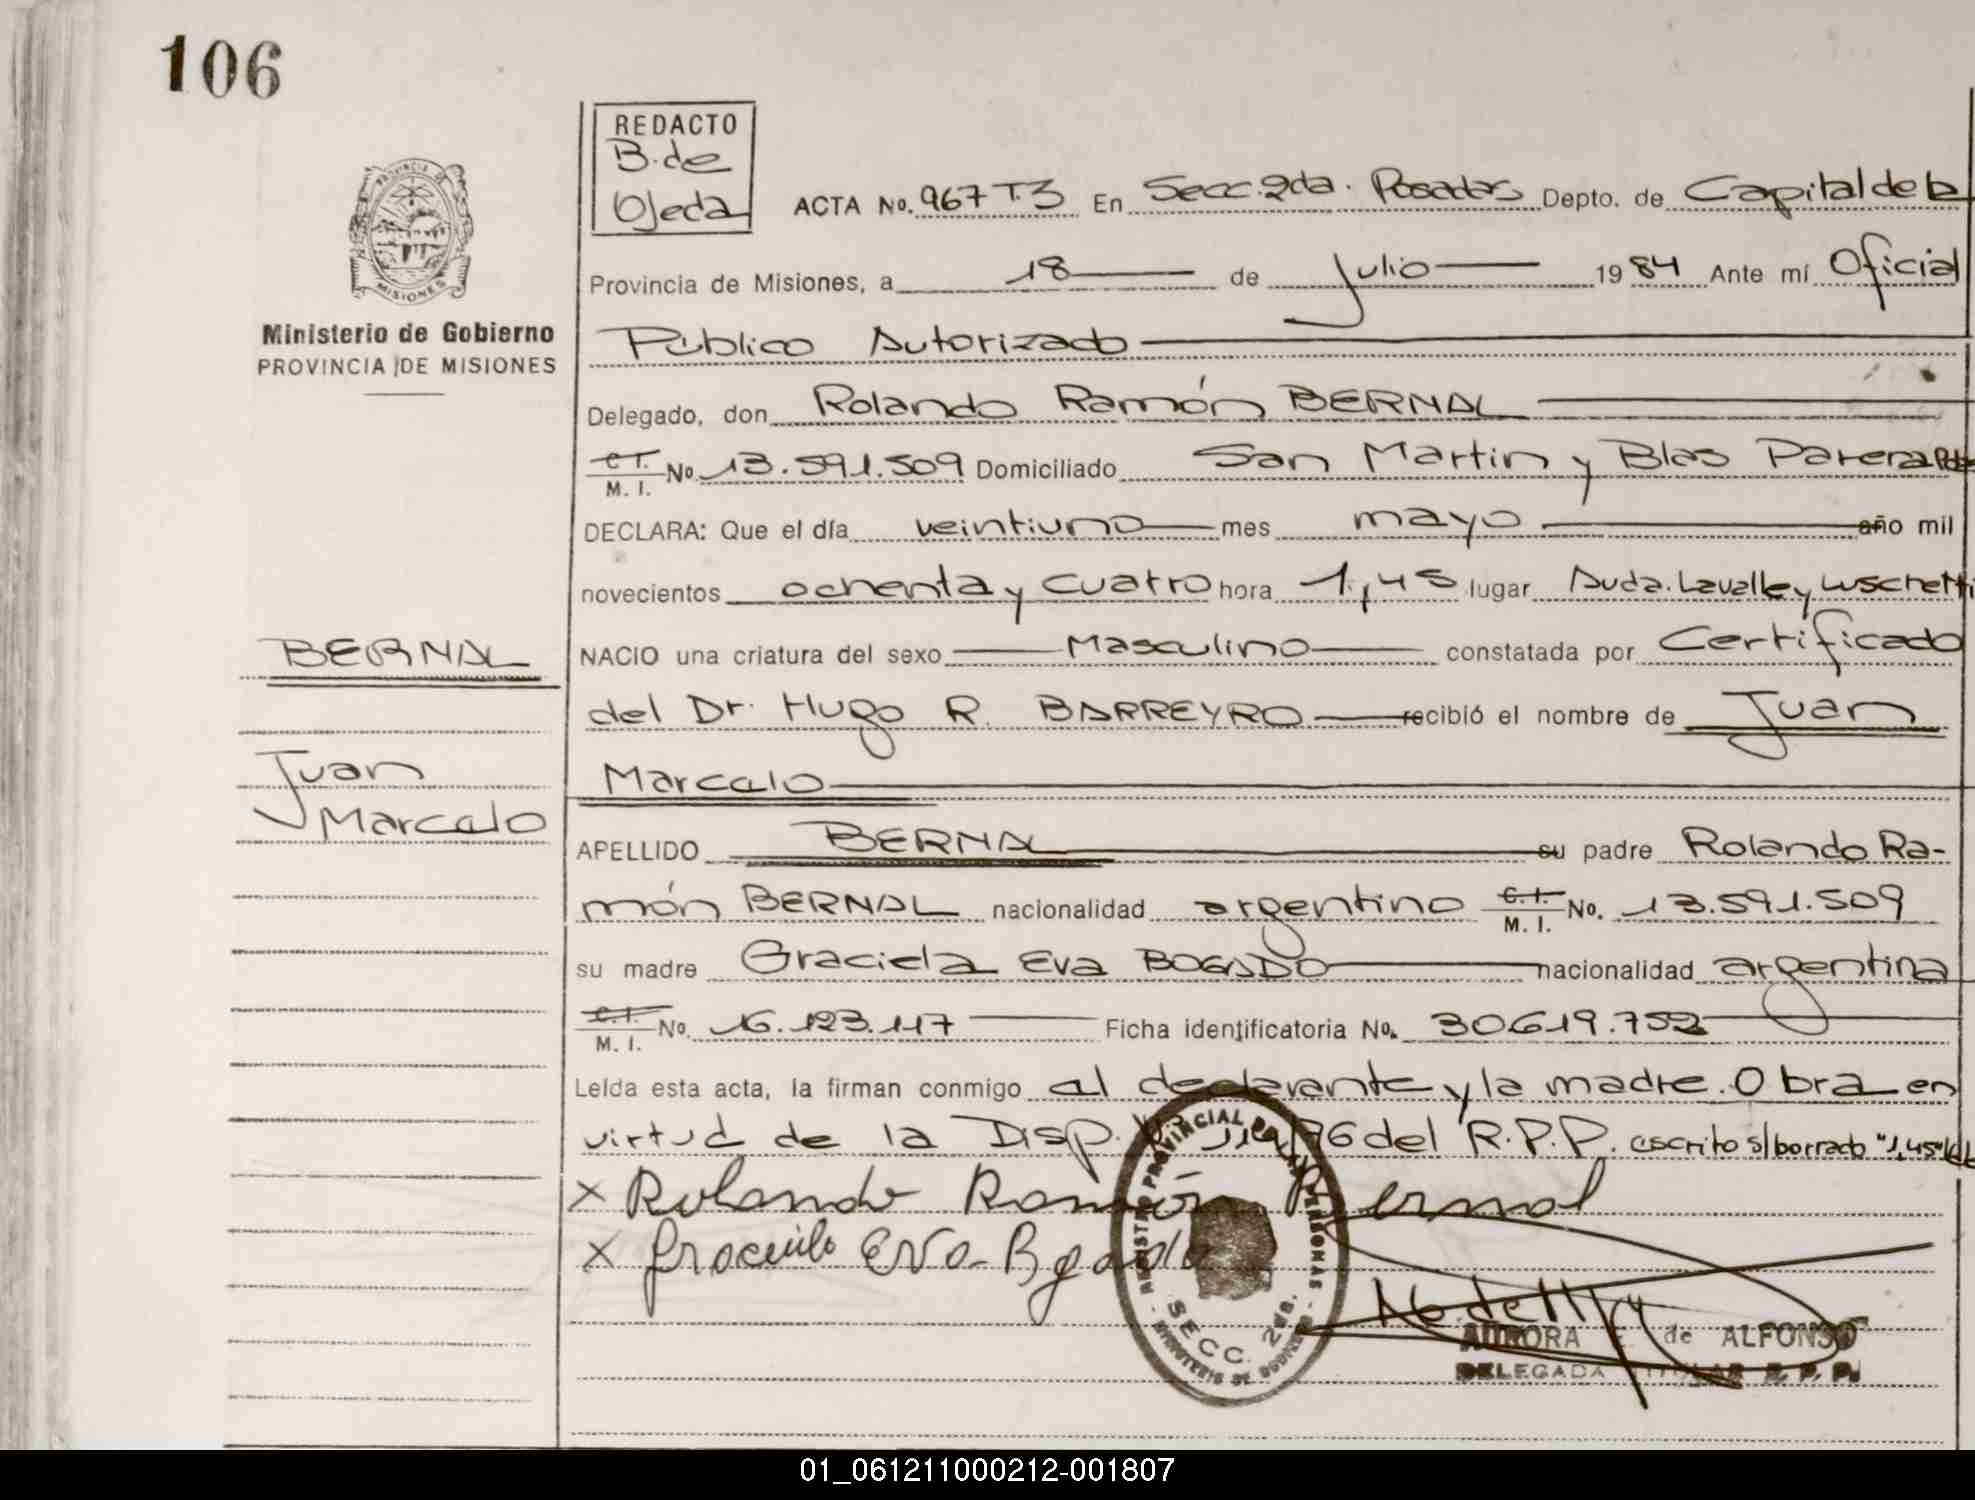 106
REDACTO
B. de
Ojeda
ACTA No. 967 T.3 En Secc. 2da. Posadas Depto. de Capital de la
Provincia de Misiones, a 18 de Julio 1984 Ante mí Oficial
Ministerio de Gobierno
PROVINCIA DE MISIONES
Público Autorizado
Delegado, don Rolando Ramón BERNAL
C.I. M. I. No. 13.591.509 Domiciliado San Martin y Blas Parera
DECLARA: Que el día veintiuno mes mayo año mil
novecientos ochenta y cuatro hora 1,45 lugar Avda. Lavalle y Luschetti
BERNAL
NACIO una criatura del sexo Masculino constatada por Certificado
del Dr. Hugo R. BARREYRO recibió el nombre de Juan
Juan
Marcelo
Marcelo
APELLIDO BERNAL su padre Rolando Ra-
món BERNAL nacionalidad argentino C.I. M. I. No. 13.591.509
su madre Graciela Eva BOGADO nacionalidad argentina
C.I. M. I. No. 16.123.117 Ficha identificatoria No. 30.619.752
Leída esta acta, la firman conmigo el declarante y la madre. Obra en
virtud de la Disp. 76 del R.P.P. escrito s/borrado "1,45"
x Rolando Ramón Bernal
x Graciela Eva Bgado
REGISTRO PROVINCIAL DE LAS PERSONAS
SECC. 2da.
MINISTERIO DE GOBIERNO
AURORA de ALFONSO
DELEGADA TITULAR R. P. P.
01_061211000212-001807